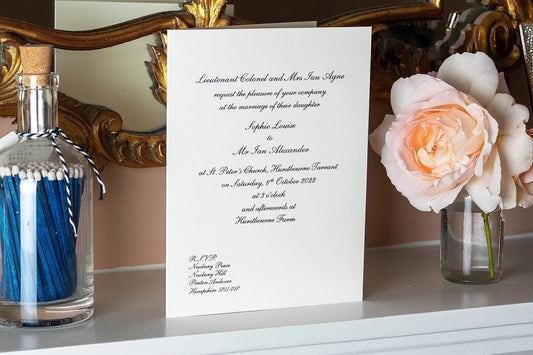 Lieutenant Colonel and Mrs Ian Agne
request the pleasure of your company
at the marriage of their daughter
Sophie Louise
to
Mr Ian Alexander
at St. Peter's Church, Hurstbourne Tarrant
on Saturday, 8th October 2022
at 3 o'clock
and afterwards at
Hurstbourne Farm
R.S.V.P.
Newbury Place
Newbury Hill
Penton
Andover
Hampshire SP11 0SP